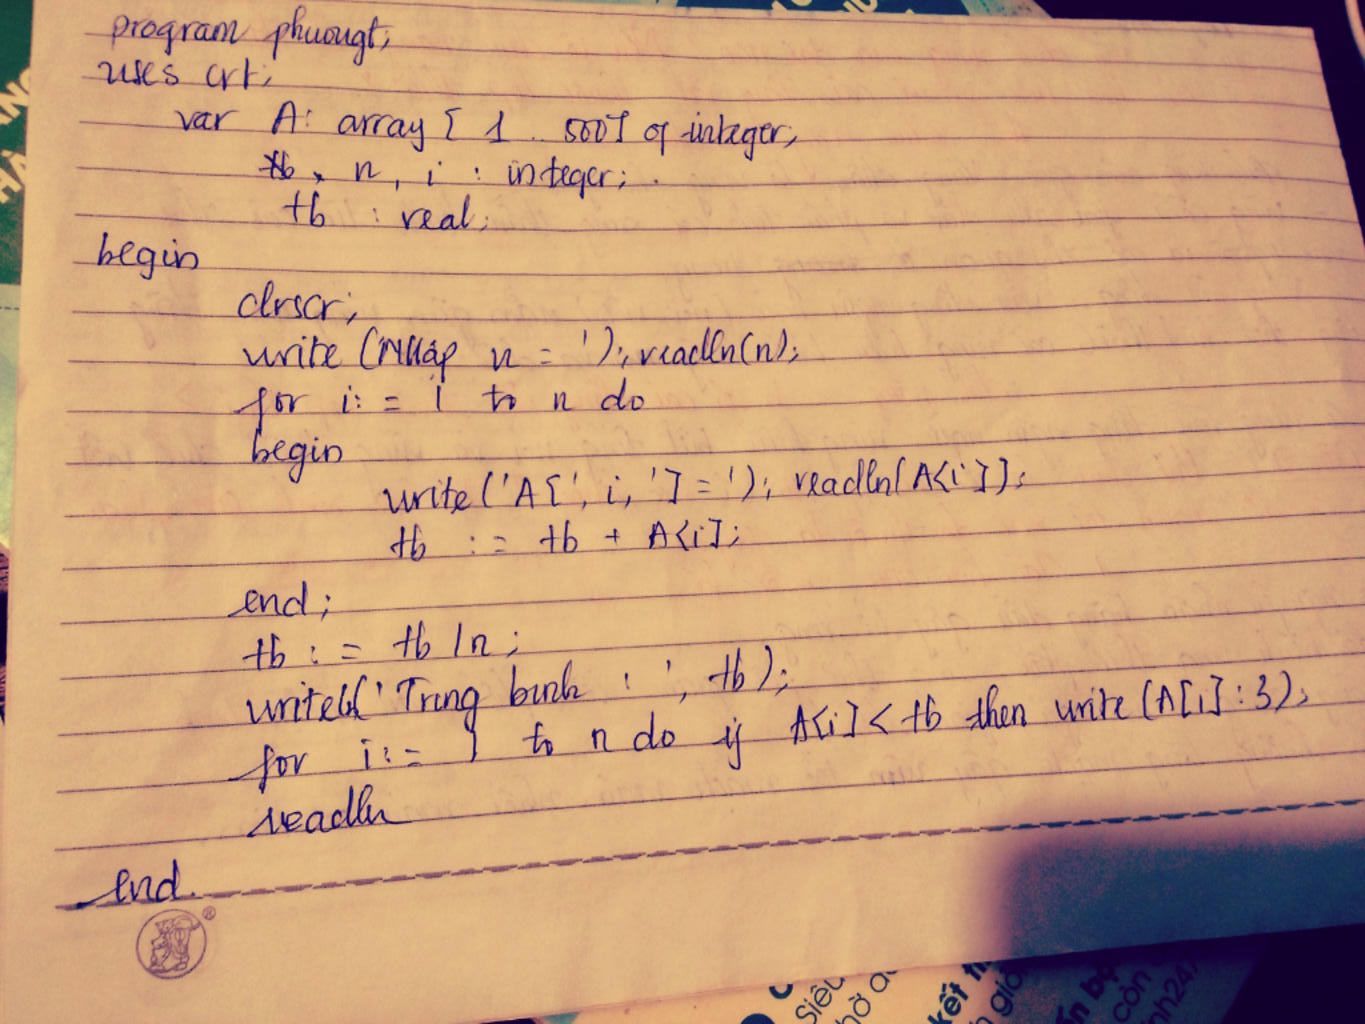 program phuongt;
uses crt;
var A: array [1 .. 500] of integer;
tb, n, i : integer;
tb : real;
begin
clrscr;
write (Nhập n = '); readln(n);
for i: = 1 to n do
begin
write ('A[', i, '] = '); readln(A[i]);
tb := tb + A[i];
end;
tb : = tb / n;
writeln('Trung bình : ', tb);
for i:= 1 to n do if A[i] < tb then write (A[i] : 3);
readln
end.
®
Siêu
kết
còn